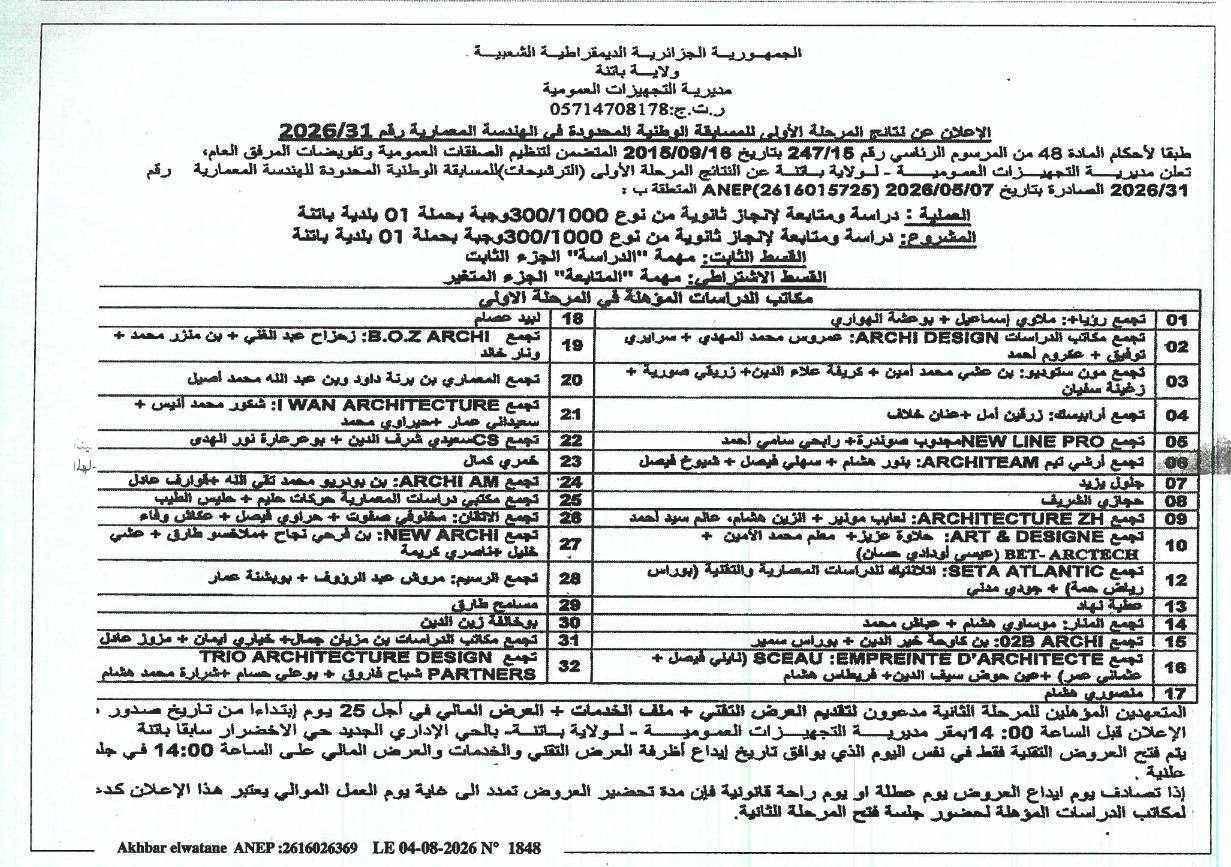 الجمهورية الجزائرية الديمقراطية الشعبية
ولاية باتنة
مديرية التجهيزات العمومية
ر.ت.ج:05714708178
الإعلان عن نتائج المرحلة الأولى للمسابقة الوطنية المحدودة في الهندسة المعمارية رقم 2026/31
طبقا لأحكام المادة 48 من المرسوم الرئاسي رقم 247/15 بتاريخ 2015/09/16 المتضمن لتنظيم الصفقات العمومية وتفويضات المرفق العام،
تعلن مديرية التجهيزات العمومية - لولاية باتنة عن النتائج المرحلة الأولى (الترشيحات)للمسابقة الوطنية المحدودة للهندسة المعمارية رقم
2026/31 الصادرة بتاريخ 2026/05/07 ANEP(2616015725) المتعلقة ب :
العملية : دراسة ومتابعة لإنجاز ثانوية من نوع 300/1000وجبة بحملة 01 بلدية باتنة
المشروع: دراسة ومتابعة لإنجاز ثانوية من نوع 300/1000وجبة بحملة 01 بلدية باتنة
القسط الثابت: مهمة "الدراسة" الجزء الثابت
القسط الاشتراطي: مهمة "المتابعة" الجزء المتغير
مكاتب الدراسات المؤهلة في المرحلة الاولى
01 تجمع رؤيا+: ملاوي إسماعيل + بوعشة الهواري
02 تجمع مكاتب الدراسات ARCHI DESIGN: عمروس محمد المهدي + سرايري
توفيق + عكروم أحمد
03 تجمع مون ستوديو: بن عشي محمد أمين + كريفة علاء الدين+ زريقي صورية +
زغينة سفيان
04 تجمع أرابيسك: زرقين أمل +عنان خلاف
05 تجمع NEW LINE PROمجدوب صوندرة+ رابحي سامي أحمد
06 تجمع أرشي تيم ARCHITEAM: بنور هشام + سهلي فيصل + شيوخ فيصل
07 جلول يزيد
08 حجازي الشريف
09 تجمع ARCHITECTURE ZH: لعايب مونير + الزين هشام، عالم سيد أحمد
10 تجمع ART & DESIGNE: حلاوة عزيز+ معلم محمد الأمين +
BET- ARCTECH (عيسى أودادي حسان)
12 تجمع SETA ATLANTIC: اتلانتيك للدراسات المعمارية والتقنية (بوراس
رياض حمة) + جودي مدني
13 عطية نهاد
14 تجمع المنار: موساوي هشام + عياش محمد
15 تجمع 02B ARCHI: بن كاوحة خير الدين + بوراس سمير
16 تجمع SCEAU :EMPREINTE D'ARCHITECTE (نايلي فيصل +
عثماني عمر) +عين حوض سيف الدين+ قريطاس هشام
17 منصوري هشام
18 لبيد عصام
19 تجمع B.O.Z ARCHI: زحزاح عبد الغني + بن منزر محمد +
ونار خالد
20 تجمع المعماري بن برنة داود وبن عبد الله محمد أصيل
21 تجمع I WAN ARCHITECTURE: شكور محمد أنيس +
سعيداني عمار +حيراوي محمد
22 تجمع CSسعيدي شرف الدين + بوعرعارة نور الهدى
23 خمري كمال
24 تجمع ARCHI AM: بن بودريو محمد تقي الله +قوارف عادل
25 تجمع مكتبي دراسات المعمارية حركات حليم + حليس الطيب
26 تجمع الاتقان: مخلوفي صفوت + حراوي فيصل + عكاش وفاء
27 تجمع NEW ARCHI: بن فرحي نجاح +ملاخسو طارق + عشي
خليل +ناصري كريمة
28 تجمع الرسيم: مروش عبد الرزوف + بويشتة عمار
29 مسامح طارق
30 بوخالفة زين الدين
31 تجمع مكاتب الدراسات بن مزيان جمال+ خياري ايمان + مزوز عادل
32 تجمع TRIO ARCHITECTURE DESIGN
PARTNERS شباح فاروق + بوعلي حسام +شرارة محمد هشام
المتعهدين المؤهلين للمرحلة الثانية مدعوون لتقديم العرض التقني + ملف الخدمات + العرض المالي في أجل 25 يوم إبتداءا من تاريخ صدور
الإعلان قبل الساعة 00: 14بمقر مديرية التجهيزات العمومية - لولاية باتنة- بالحي الإداري الجديد حي الاخضرار سابقا باتنة
يتم فتح العروض التقنية فقط في نفس اليوم الذي يوافق تاريخ إيداع أظرفة العرض التقني والخدمات والعرض المالي على الساعة 14:00 في
علنية .
إذا تصادف يوم ايداع العروض يوم عطلة او يوم راحة قانونية فإن مدة تحضير العروض تمدد الى غاية يوم العمل الموالي يعتبر هذا الإعلان
لمكاتب الدراسات المؤهلة لحضور جلسة فتح المرحلة الثانية.
Akhbar elwatane ANEP :2616026369 LE 04-08-2026 N° 1848